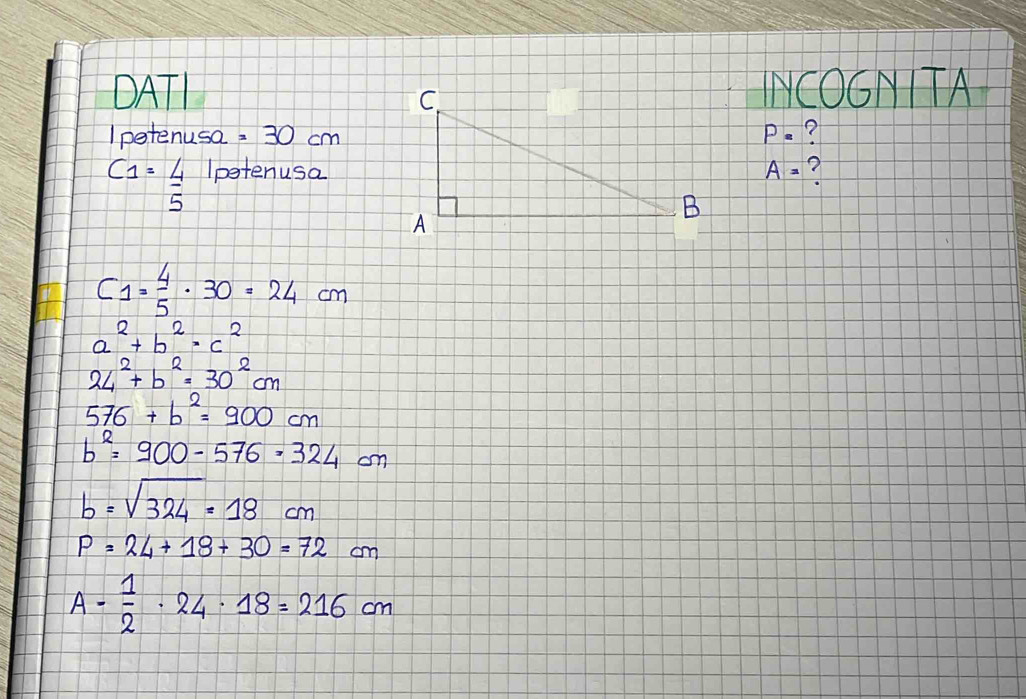 DATI
INCOGNITA
Ipotenusa = 30 cm
C1 = 4/5 Ipotenusa
P = ?
A = ?
C
A
B
C1 = 4/5 · 30 = 24 cm
a² + b² = c²
24² + b² = 30² cm
576 + b² = 900 cm
b² = 900 - 576 = 324 cm
b = √324 = 18 cm
P = 24 + 18 + 30 = 72 cm
A = 1/2 · 24 · 18 = 216 cm